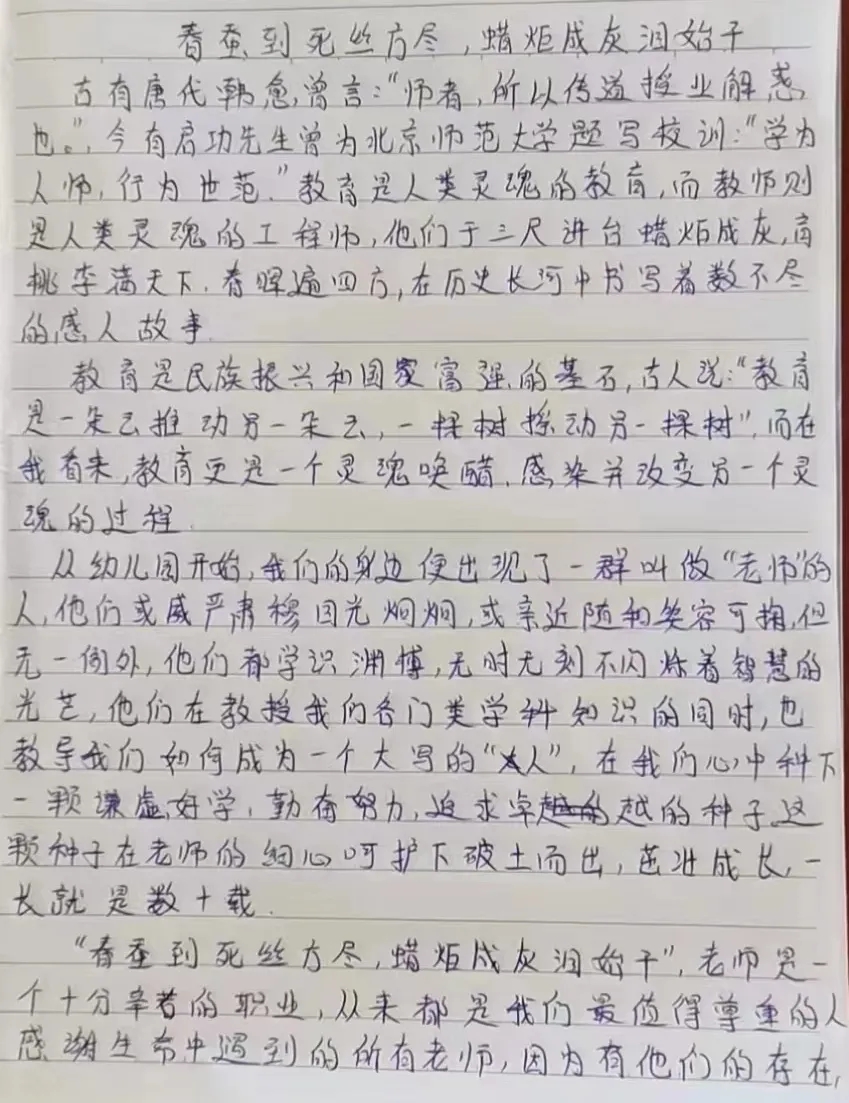 春蚕到死丝方尽，蜡炬成灰泪始干
古有唐代韩愈，曾言：“师者，所以传道授业解惑
也。”，今有启功先生曾为北京师范大学题写校训：“学为
人师，行为世范.”教育是人类灵魂的教育，而教师则
是人类灵魂的工程师，他们于三尺讲台蜡炬成灰，育
桃李满天下.春晖遍四方，在历史长河中书写着数不尽
的感人故事.
教育是民族振兴和国家富强的基石，古人说：“教育
是一朵云推动另一朵云，一棵树摇动另一棵树”，而在
我看来，教育更是一个灵魂唤醒、感染并改变另一个灵
魂的过程.
从幼儿园开始，我们的身边便出现了一群叫做“老师”的
人，他们或威严肃穆目光炯炯，或亲近随和笑容可掬，但
无一例外，他们都学识渊博，无时无刻不闪烁着智慧的
光芒，他们在教授我们各门类学科知识的同时，也
教导我们如何成为一个大写的“人”，在我们心中种下
一颗谦虚好学，勤奋努力，追求卓越的种子.这
颗种子在老师的细心呵护下破土而出，茁壮成长，一
长就是数十载.
“春蚕到死丝方尽，蜡炬成灰泪始干”，老师是一
个十分辛苦的职业，从来都是我们最值得尊重的人
感谢生命中遇到的所有老师，因为有他们的存在，